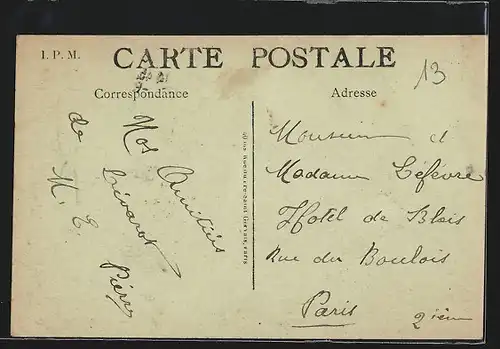 I. P. M.
CARTE POSTALE
13
Correspondance
Adresse
Nos Amitiés
de Livarot
M. E. Pierre
Monsieur et
Madame Lefèvre
Hotel de Blois
Rue du Bouloi
Paris 2ième